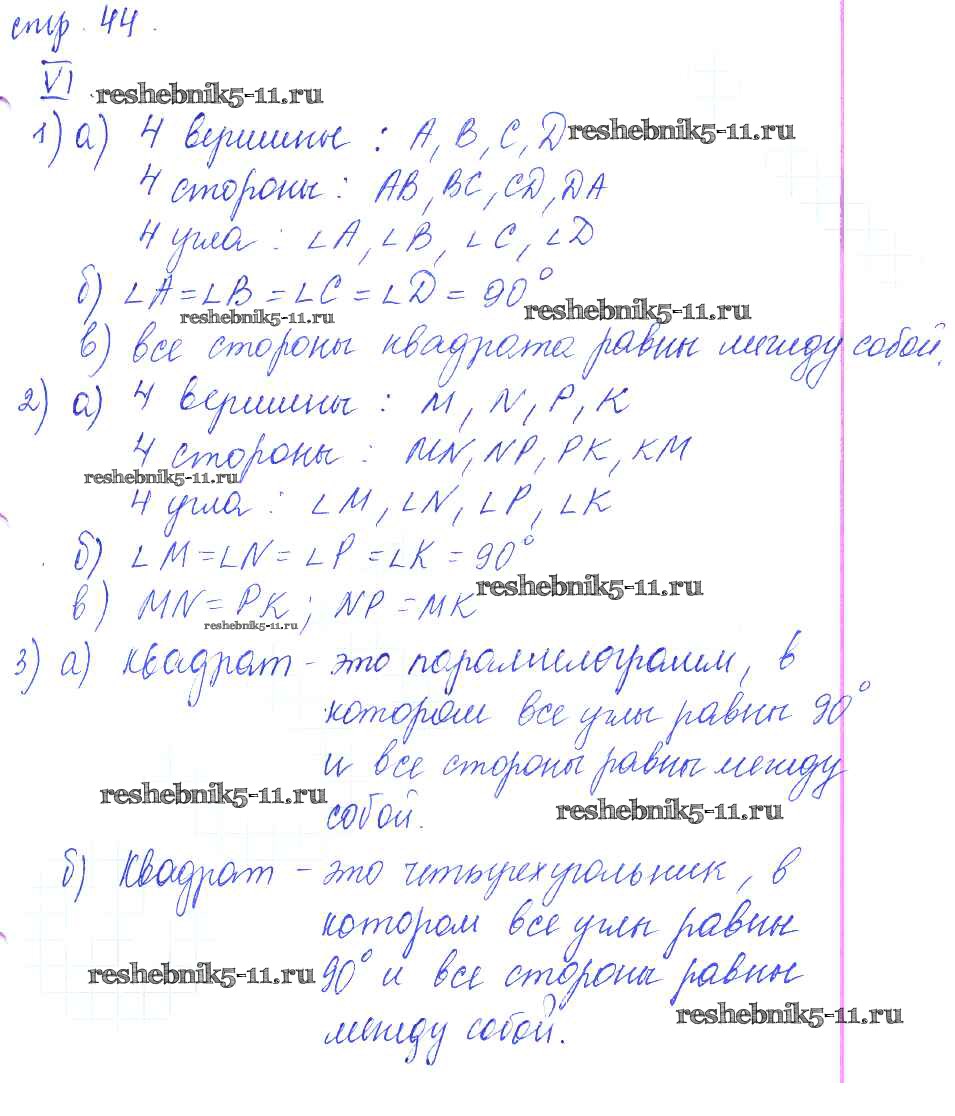 стр. 44.
VI
reshebnik5-11.ru
1) а) 4 вершины : A, B, C, D
reshebnik5-11.ru
4 стороны : AB, BC, CD, DA
4 угла : ∠A, ∠B, ∠C, ∠D
б) ∠A = ∠B = ∠C = ∠D = 90°
reshebnik5-11.ru
reshebnik5-11.ru
в) все стороны квадрата равны между собой.
2) а) 4 вершины : M, N, P, K
4 стороны : MN, NP, PK, KM
reshebnik5-11.ru
4 угла : ∠M, ∠N, ∠P, ∠K
б) ∠M = ∠N = ∠P = ∠K = 90°
reshebnik5-11.ru
в) MN = PK ; NP = MK
reshebnik5-11.ru
3) а) Квадрат - это параллелограмм, в
котором все углы равны 90°
и все стороны равны между
reshebnik5-11.ru
собой.
reshebnik5-11.ru
б) Квадрат - это четырехугольник, в
котором все углы равны
reshebnik5-11.ru
90° и все стороны равны
reshebnik5-11.ru
между собой.